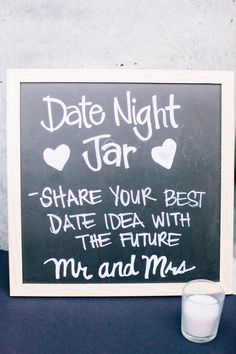 Date Night
Jar
-SHARE YOUR BEST
DATE IDEA WITH
THE FUTURE
Mr and Mrs